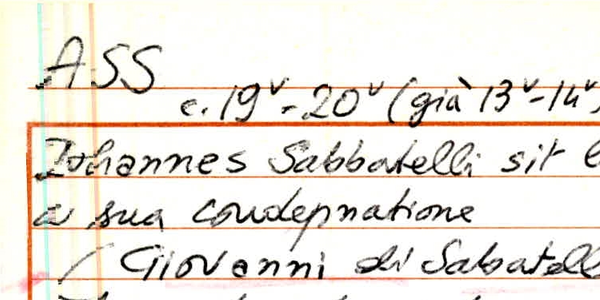 ASS
c. 19v - 20v (già 13v-14v)
Johannes Sabbatelli sit
a sua condepnatione
Giovanni di Sabatell